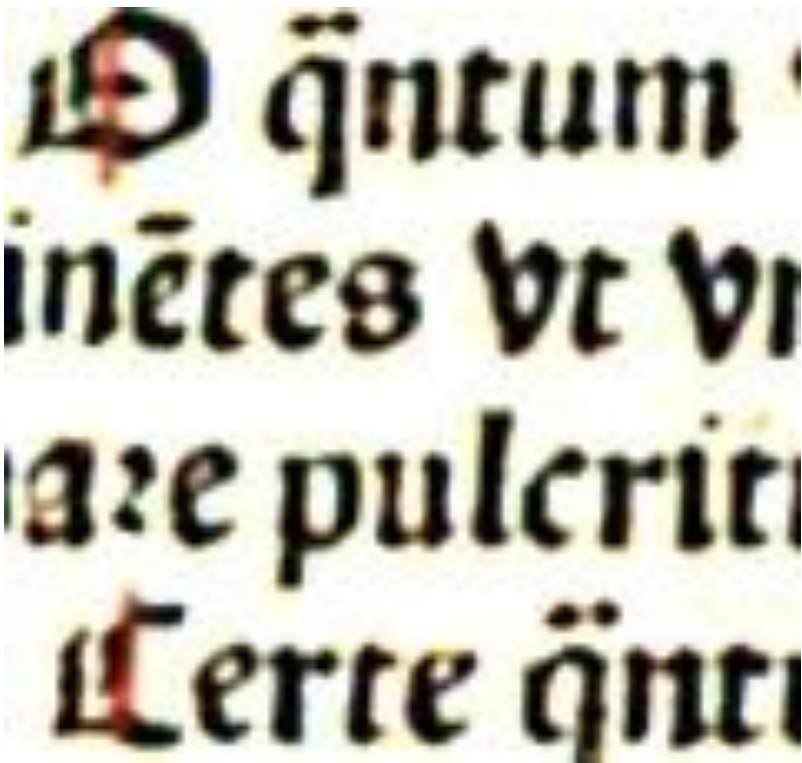 O q̈ntum
inētes vt vr
aꝛe pulcrit
Certe q̈ntu